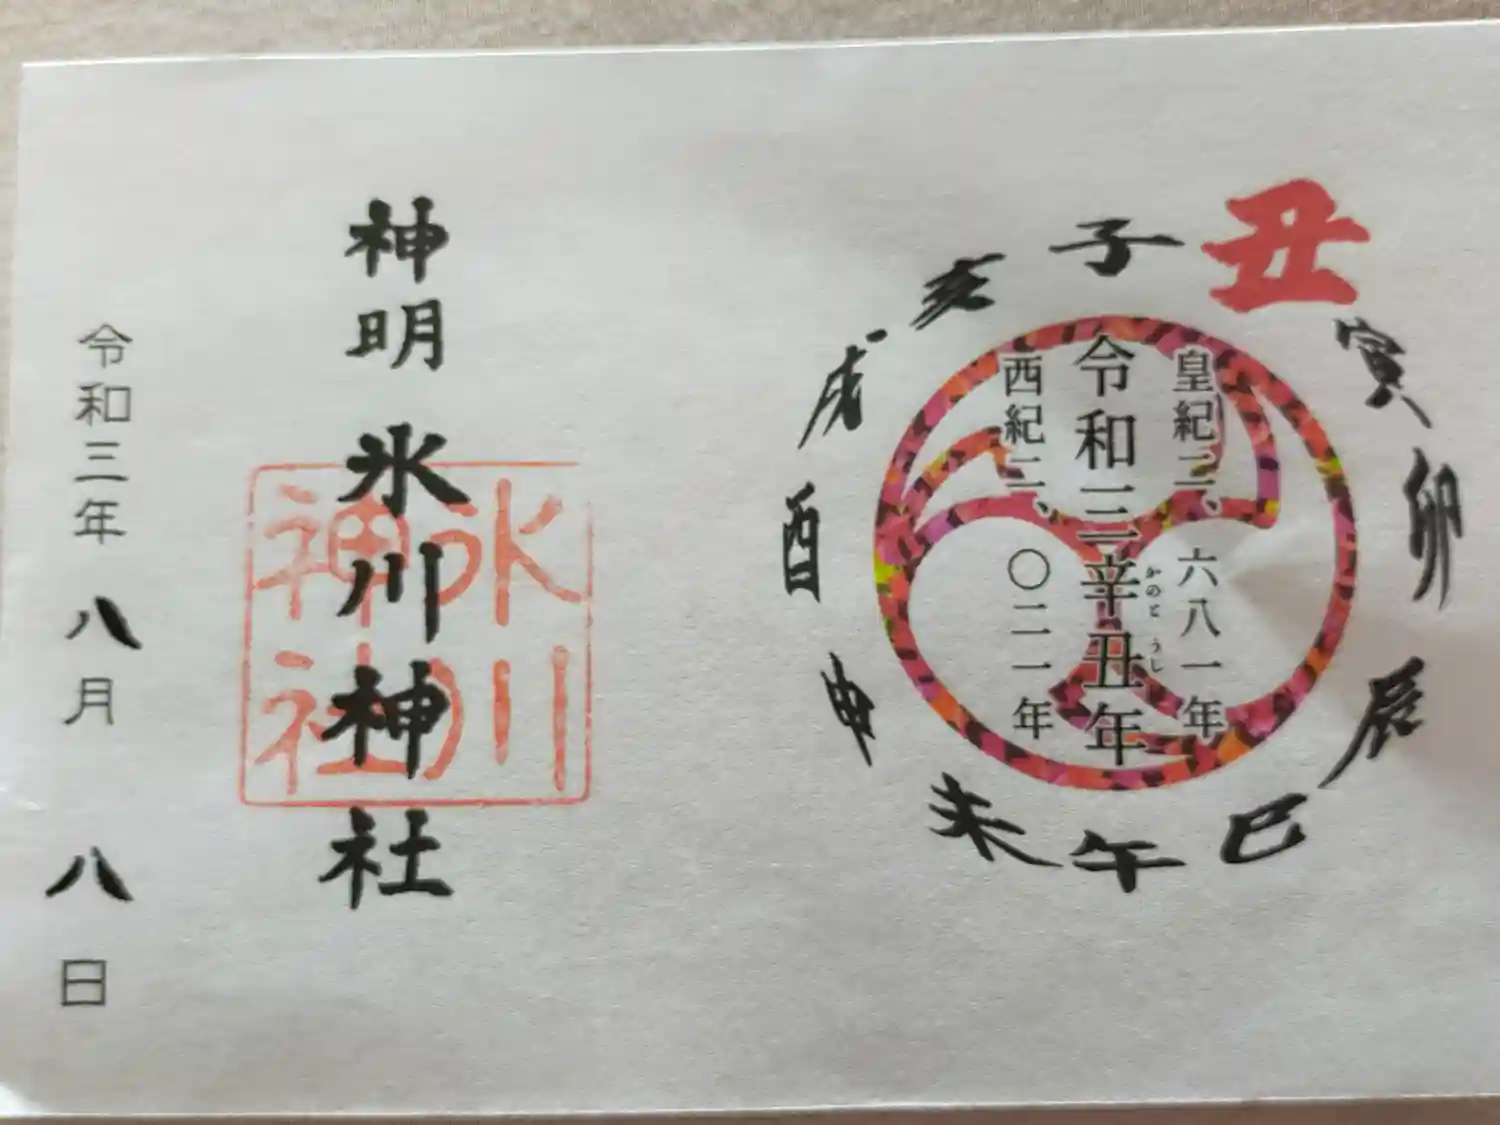 子
丑
寅
卯
辰
巳
午
未
申
酉
戌
亥
皇紀二、六八一年
令和三辛丑年
かのと うし
西紀二、〇二一年
神明 氷川神社
氷川
神社
令和三年 八月 八日